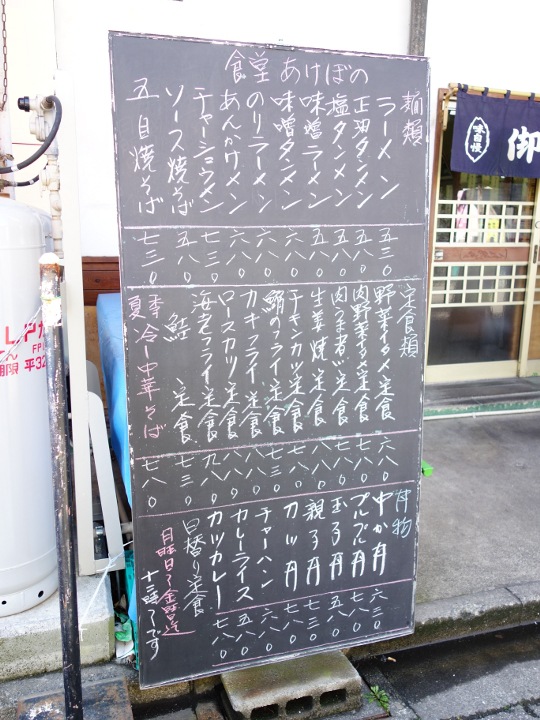 食堂 あけぼの
麺類
ラーメン 五三〇
正油タンメン 五八〇
塩タンメン 五八〇
味噌ラーメン 五八〇
味噌タンメン 六八〇
のりラーメン 六八〇
あんかけメン 六八〇
チャーシュウメン 七三〇
ソース焼そば 五八〇
五目焼そば 七三〇
定食類
野菜イタメ定食 六八〇
肉野菜イタメ定食
肉うま煮定食
生姜焼定食
チキンカツ定食 七八〇
鯵のフライ定食 七三〇
カキフライ定食 八八〇
ロースカツ定食 八八〇
海老フライ定食 九八〇
鮭 定食 七三〇
夏季 冷し中華そば 七八〇
丼物
中か丼 六三〇
プルプル丼 七八〇
玉子丼 五八〇
親子丼 七三〇
カツ丼 七八〇
チャーハン 六八〇
カレーライス 五八〇
カツカレー 七八〇
日替り定食
月曜日〜金曜迄
です
味自慢
御